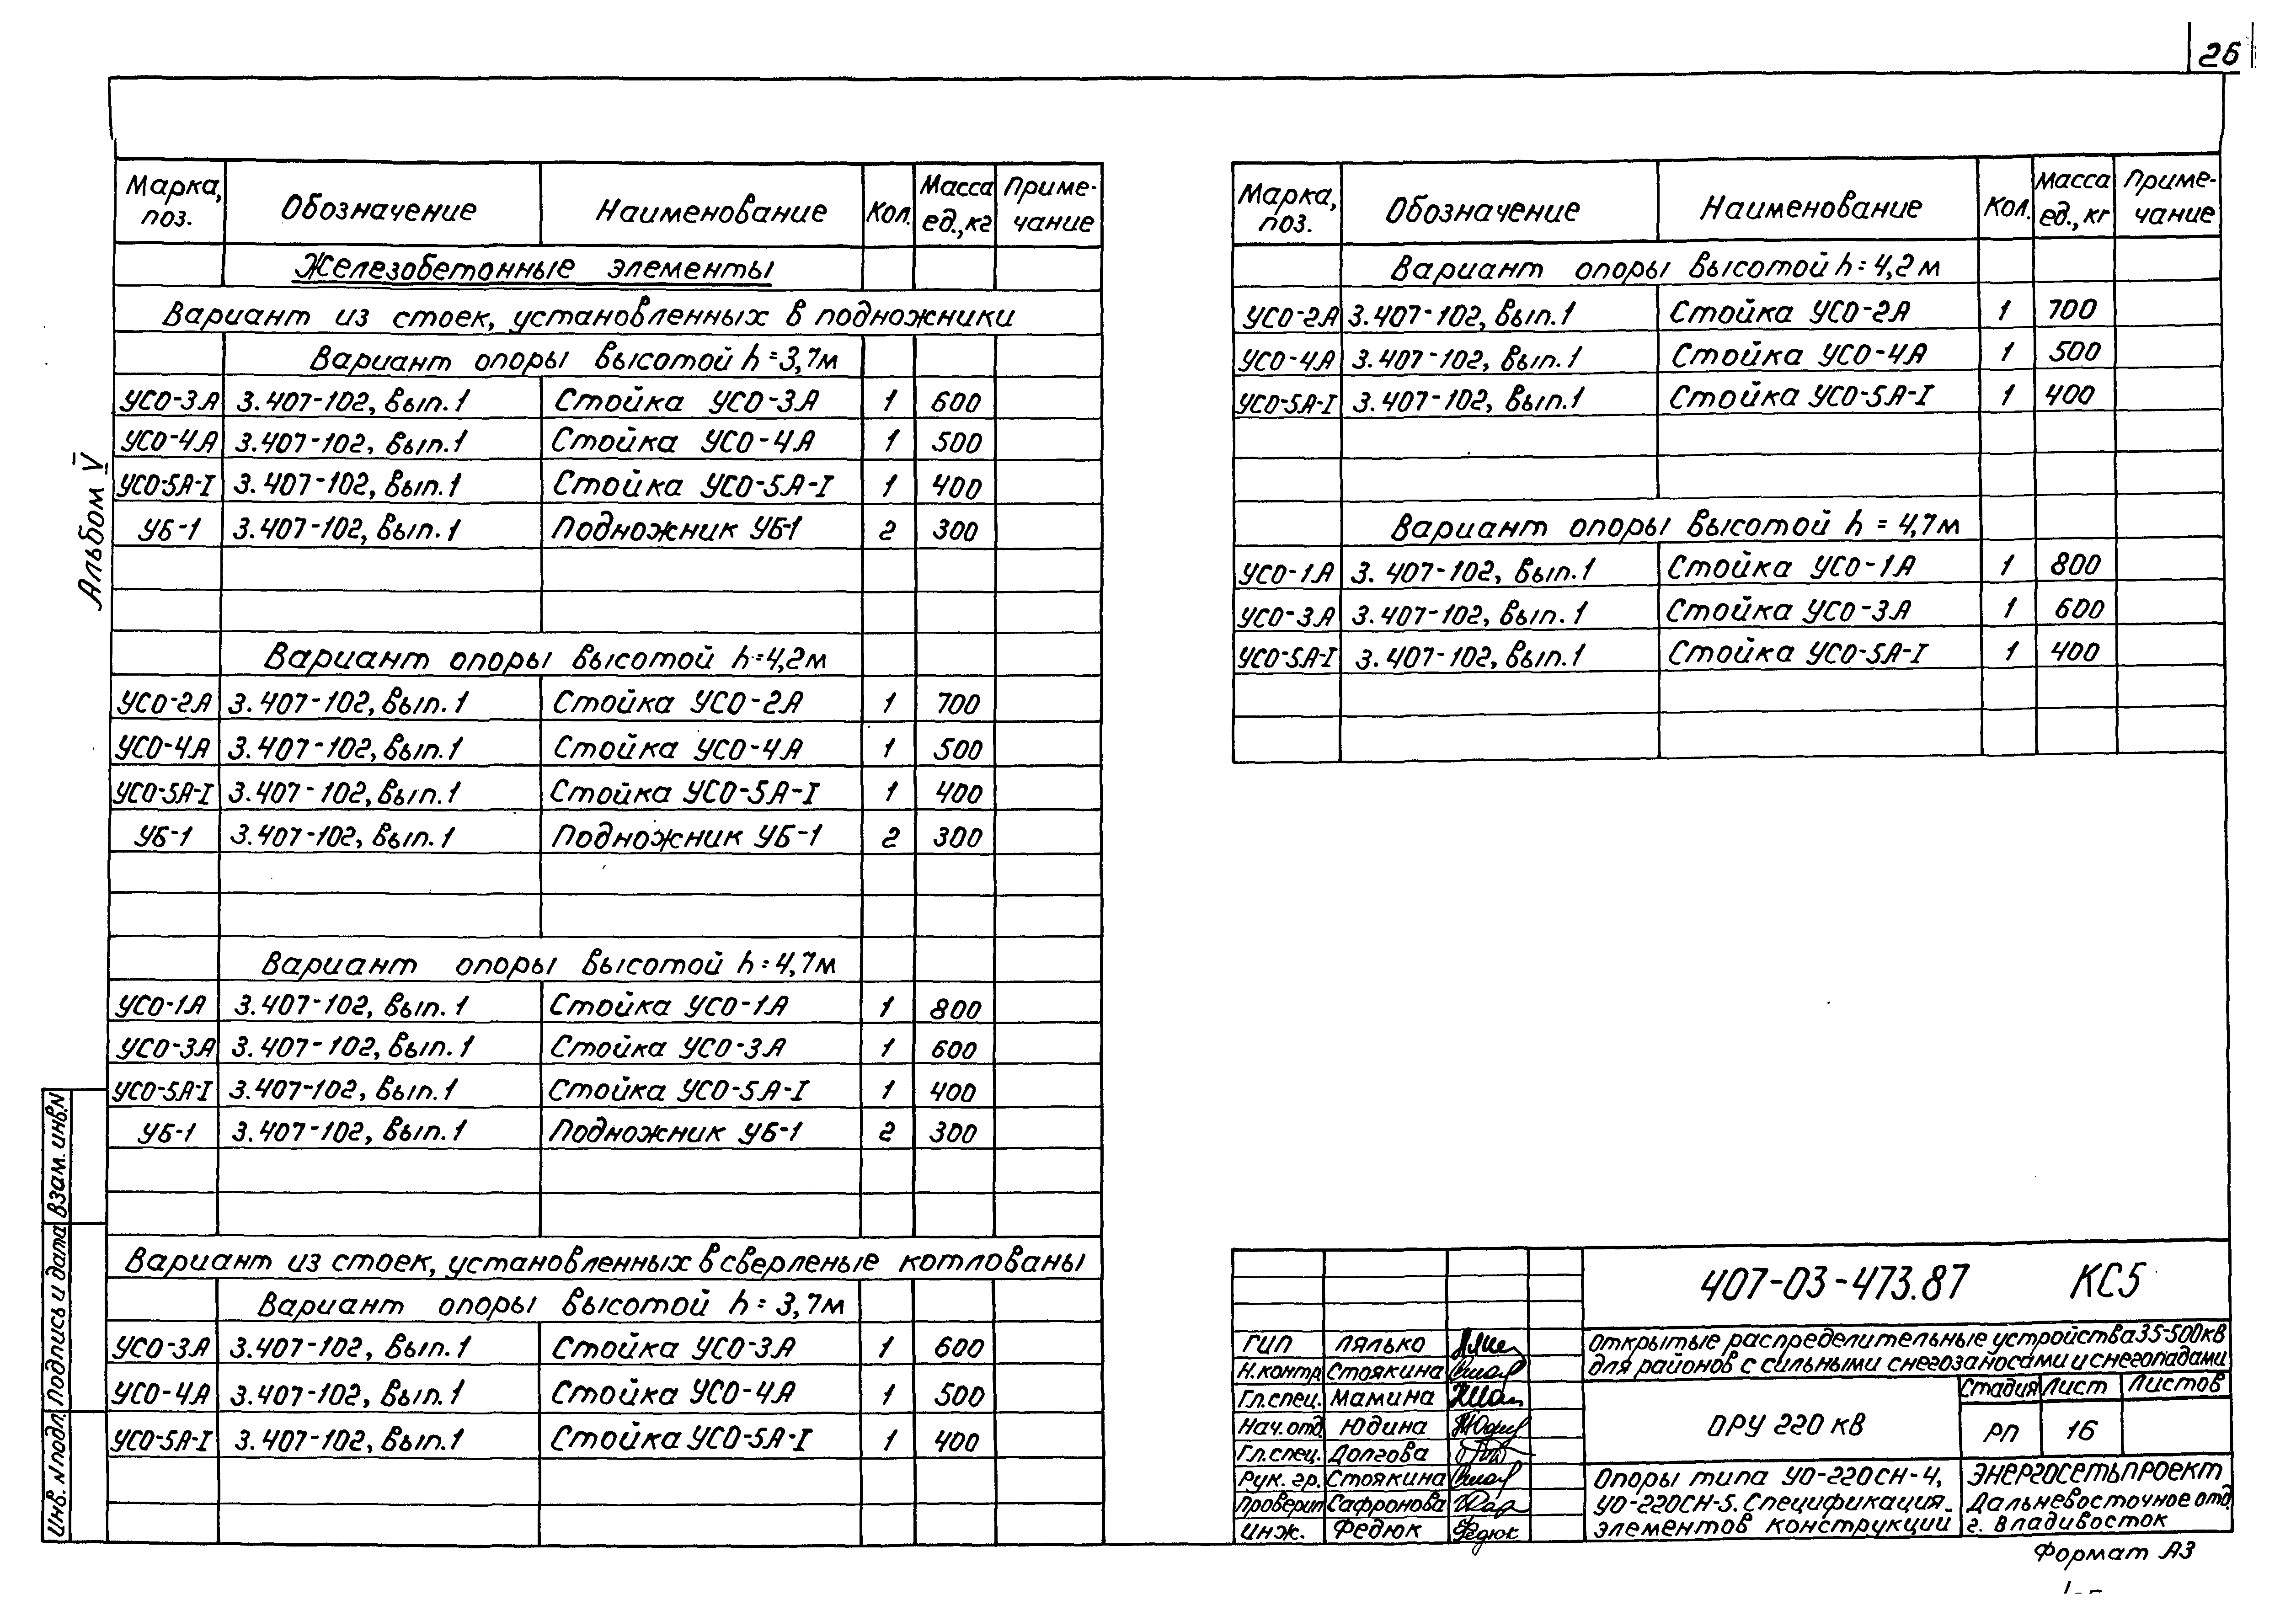 26
Альбом V
Марка, поз. Обозначение Наименование Кол. Масса ед., кг Приме-чание
Железобетонные элементы
Вариант из стоек, установленных в подножники
Вариант опоры высотой h=3,7м
УСО-3А 3.407-102, Вып.1 Стойка УСО-3А 1 600
УСО-4А 3.407-102, Вып.1 Стойка УСО-4А 1 500
УСО-5А-I 3.407-102, Вып.1 Стойка УСО-5А-I 1 400
УБ-1 3.407-102, Вып.1 Подножник УБ-1 2 300
Вариант опоры высотой h=4,2м
УСО-2А 3.407-102, Вып.1 Стойка УСО-2А 1 700
УСО-4А 3.407-102, Вып.1 Стойка УСО-4А 1 500
УСО-5А-I 3.407-102, Вып.1 Стойка УСО-5А-I 1 400
УБ-1 3.407-102, Вып.1 Подножник УБ-1 2 300
Вариант опоры высотой h=4,7м
УСО-1А 3.407-102, Вып.1 Стойка УСО-1А 1 800
УСО-3А 3.407-102, Вып.1 Стойка УСО-3А 1 600
УСО-5А-I 3.407-102, Вып.1 Стойка УСО-5А-I 1 400
УБ-1 3.407-102, Вып.1 Подножник УБ-1 2 300
Вариант из стоек, установленных в сверленые котлованы
Вариант опоры высотой h=3,7м
УСО-3А 3.407-102, Вып.1 Стойка УСО-3А 1 600
УСО-4А 3.407-102, Вып.1 Стойка УСО-4А 1 500
УСО-5А-I 3.407-102, Вып.1 Стойка УСО-5А-I 1 400
Марка, поз. Обозначение Наименование Кол. Масса ед., кг Приме-чание
Вариант опоры высотой h=4,2м
УСО-2А 3.407-102, Вып.1 Стойка УСО-2А 1 700
УСО-4А 3.407-102, Вып.1 Стойка УСО-4А 1 500
УСО-5А-I 3.407-102, Вып.1 Стойка УСО-5А-I 1 400
Вариант опоры высотой h=4,7м
УСО-1А 3.407-102, Вып.1 Стойка УСО-1А 1 800
УСО-3А 3.407-102, Вып.1 Стойка УСО-3А 1 600
УСО-5А-I 3.407-102, Вып.1 Стойка УСО-5А-I 1 400
Взам. инв.N
Подпись и дата
Инв. N подл.
407-03-473.87 КС5
ГИП Лялько
Н.контр. Стоякина
Гл.спец. Мамина
Нач.отд. Юдина
Гл.спец. Долгова
Рук. гр. Стоякина
Проверил Сафронова
Инж. Федюк Федюк
Открытые распределительные устройства 35-500кВ
для районов с сильными снегозаносами и снегопадами
ОРУ 220 кВ
Стадия Лист Листов
РП 16
Опоры типа УО-220СН-4,
УО-220СН-5. Спецификация
элементов конструкции
Энергосетьпроект
Дальневосточное отд.
г. Владивосток
Формат А3